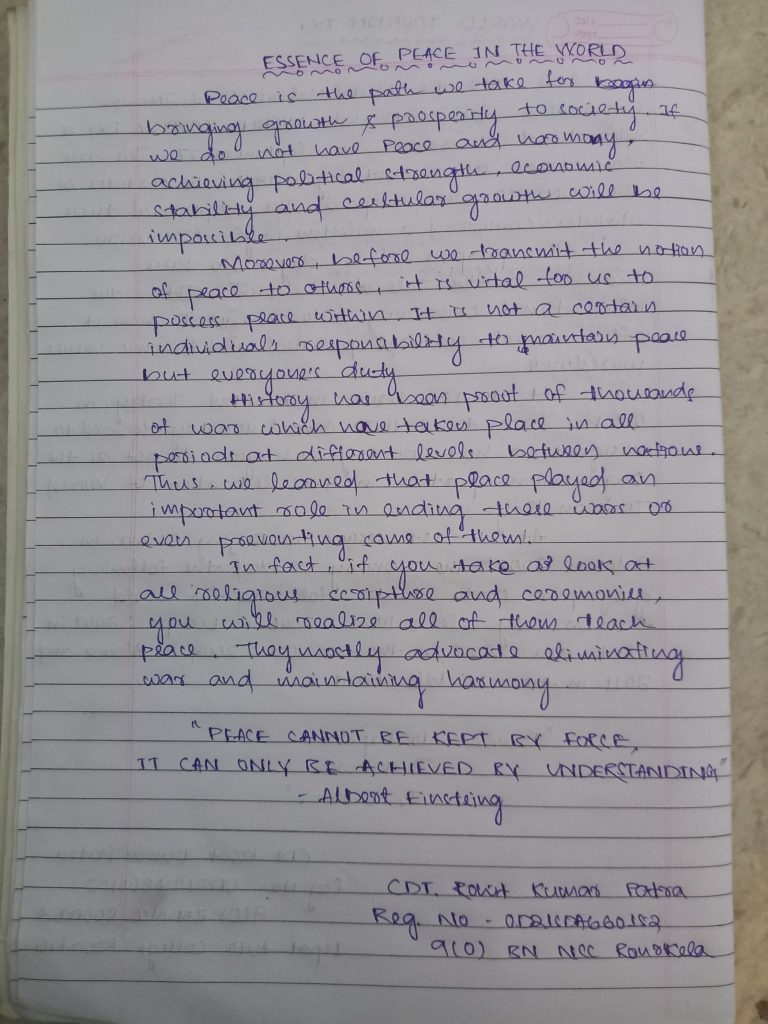 ESSENCE OF PEACE IN THE WORLD
Peace is the path we take for
bringing growth & prosperity to society. If
we do not have Peace and harmony,
achieving political strength, economic
stability and cultular growth will be
impossible.
Morever, before we transmit the notion
of peace to others, it is vital for us to
possess peace within. It is not a certain
individual's responsibility to maintain peace
but everyone's duty
History has been proof of thousands
of war which have taken place in all
periods at different levels between nations.
Thus, we learned that peace played an
important role in ending these wars or
even preventing some of them.
In fact, if you take a look at
all religious scripture and ceremonies,
you will realize all of them teach
peace. They mostly advocate eliminating
war and maintaining harmony
"PEACE CANNOT BE KEPT BY FORCE,
IT CAN ONLY BE ACHIEVED BY UNDERSTANDING"
- Albert Einsteing
CDT. Rohit Kumar Patra
Reg. No -
9(O) BN NCC Rourkela